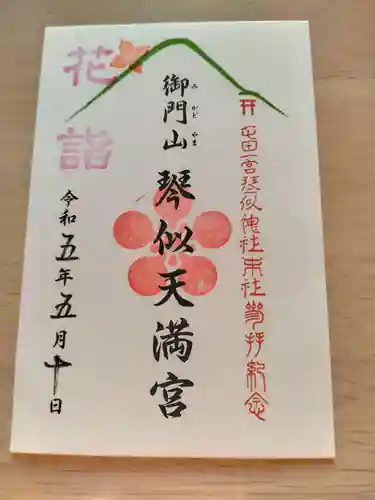 屯田一宮琴似神社末社参拝紀念
御門山
みかどやま
琴似天満宮
花詣
令和五年五月十日